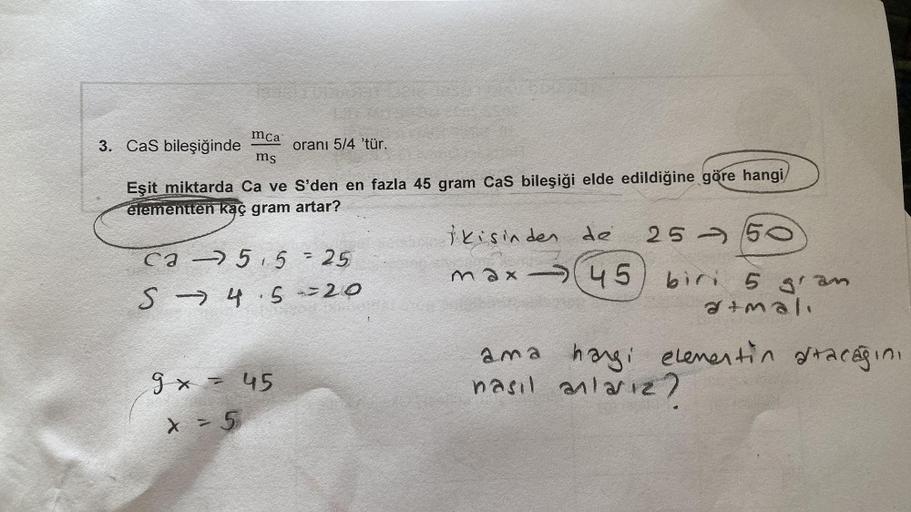 3. CaS bileşiğinde mCa/mS oranı 5/4 'tür.
Eşit miktarda Ca ve S'den en fazla 45 gram CaS bileşiği elde edildiğine göre hangi
elementten kaç gram artar?
Ca → 5.5 = 25
S → 4.5 = 20
9x = 45
x = 5
ikisinden de 25 → 50
max → 45 biri 5 gram
artmalı
ama hangi elementin artacağını
nasıl anlarız?